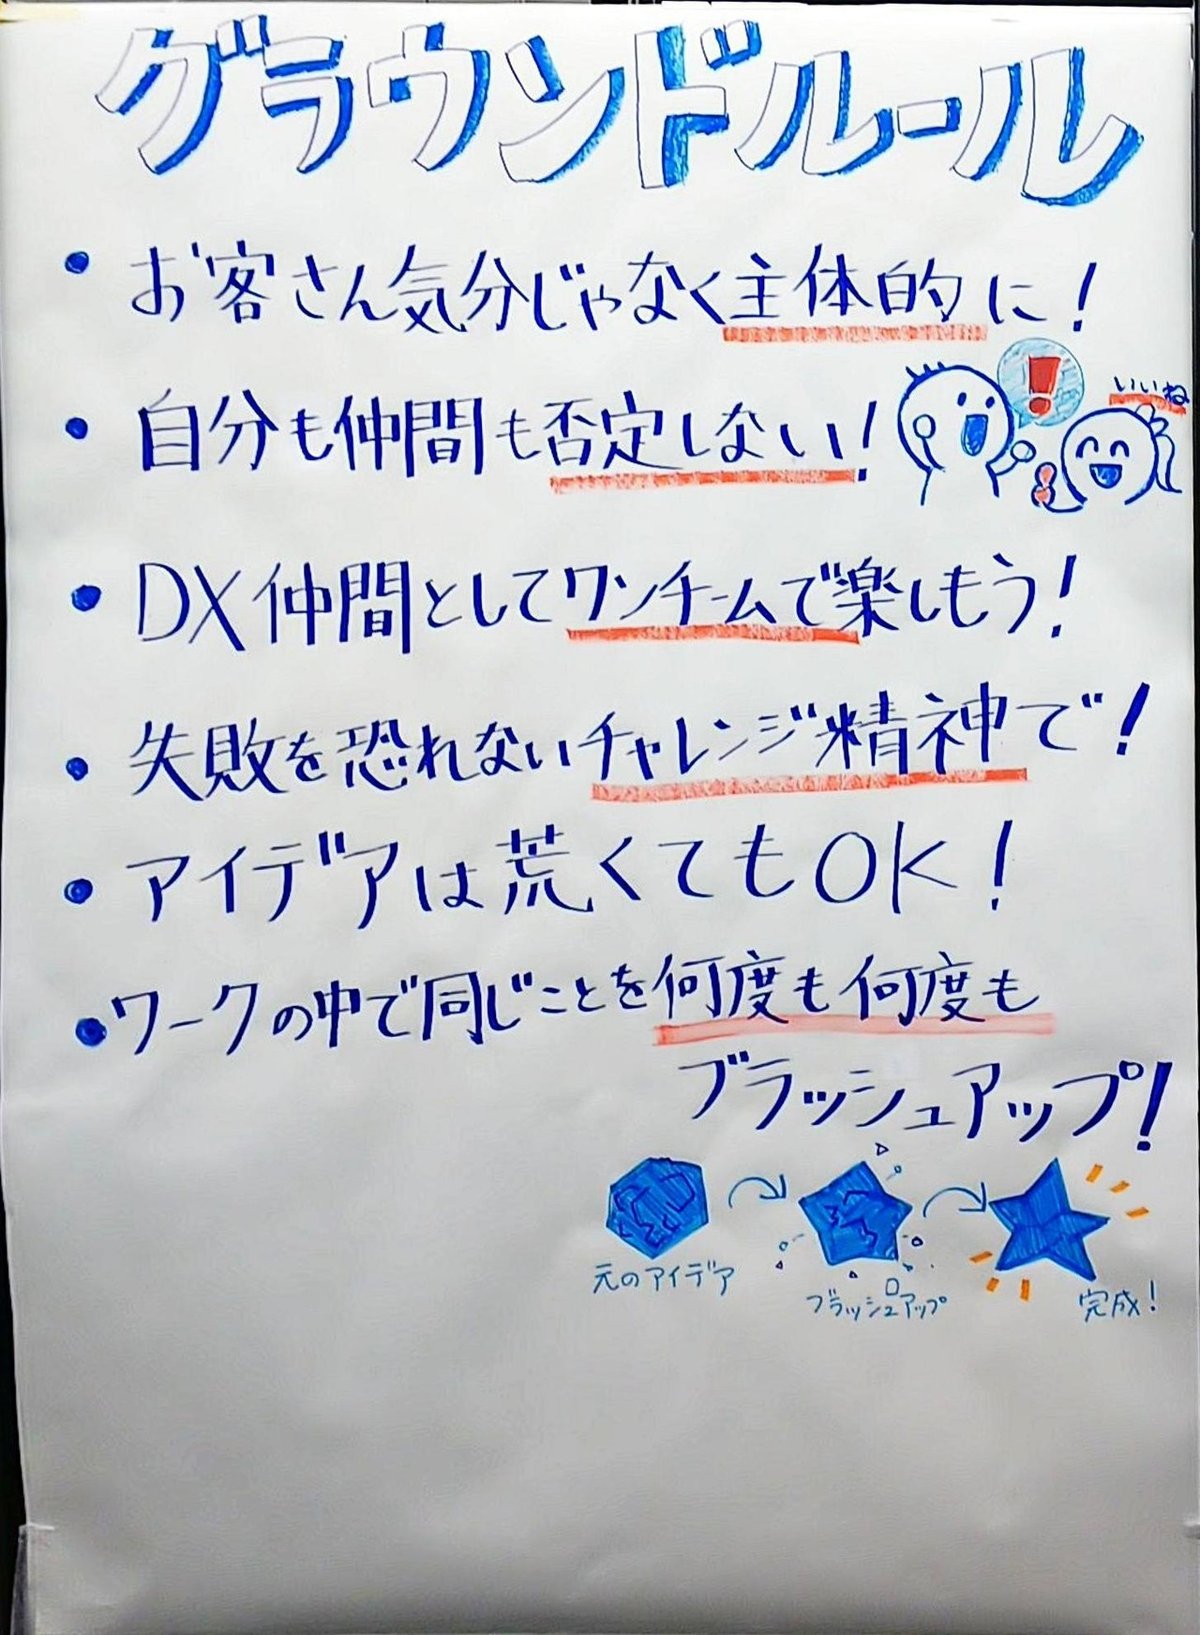 グラウンドルール
• お客さん気分じゃなく主体的に!
• 自分も仲間も否定しない!
!
いいね
• DX仲間としてワンチームで楽しもう!
• 失敗を恐れないチャレンジ精神で!
• アイデアは荒くてもOK!
• ワークの中で同じことを何度も何度も
ブラッシュアップ!
元のアイデア
ブラッシュアップ
完成!